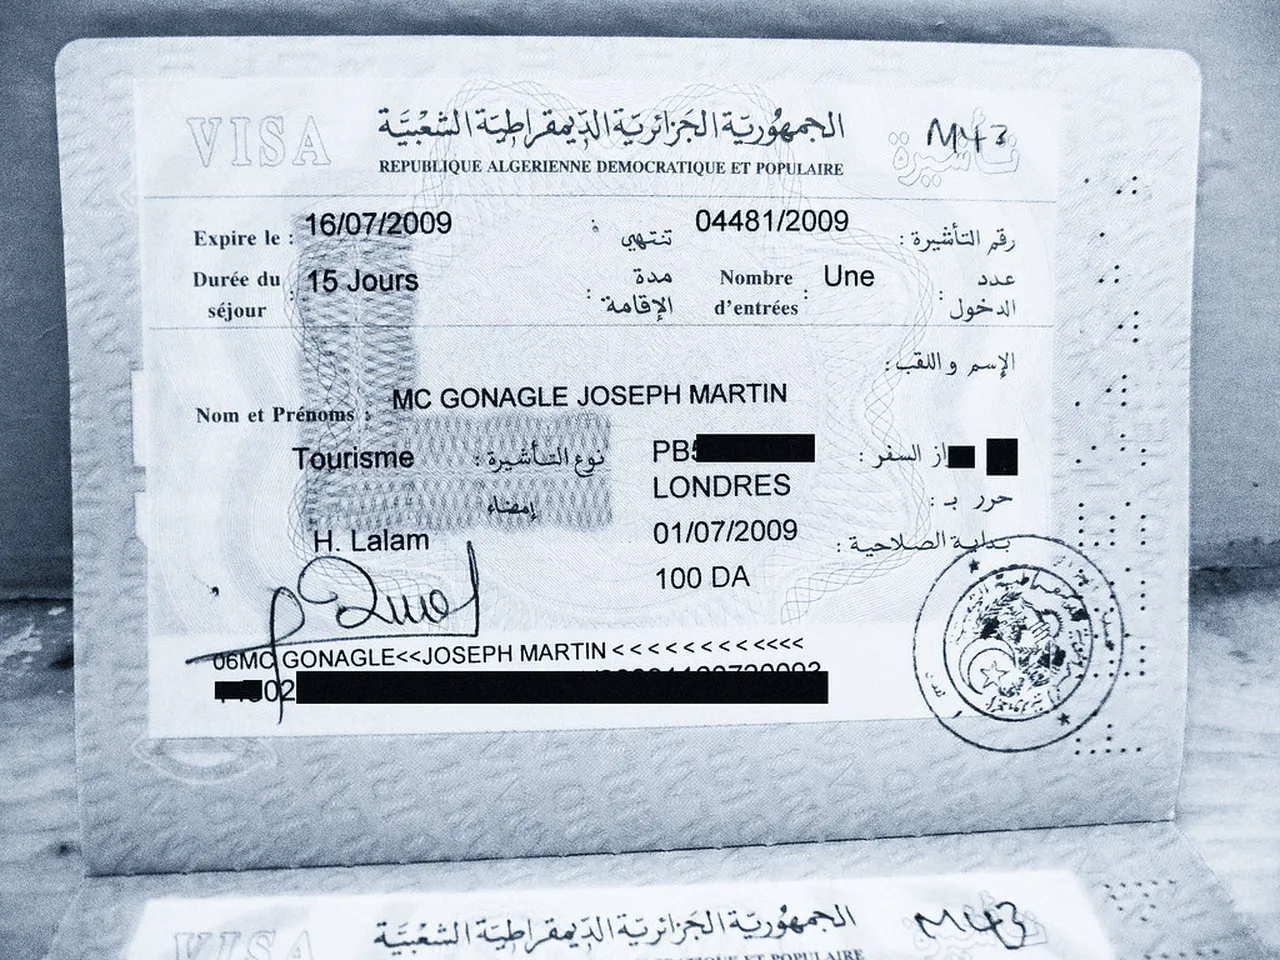 VISA الجمهوريّة الجزائريّة الدّيمقراطيّة الشّعبيّة تأشيرة
M43
REPUBLIQUE ALGERIENNE DEMOCRATIQUE ET POPULAIRE
Expire le : 16/07/2009 تنتهي : 04481/2009 رقم التأشيرة :
Durée du séjour : 15 Jours مدة الإقامة : Nombre d'entrées : Une عدد الدخول :
الإسم و اللقب :
Nom et Prénoms : MC GONAGLE JOSEPH MARTIN
Tourisme نوع التأشيرة : PB از السفر :
إمضاء LONDRES حرر بـ :
H. Lalam 01/07/2009 بداية الصلاحية :
100 DA
06MC GONAGLE<<JOSEPH MARTIN <<<<<<<<<<<<
02
VISA الجمهوريّة الجزائريّة الدّيمقراطيّة الشّعبيّة
M43